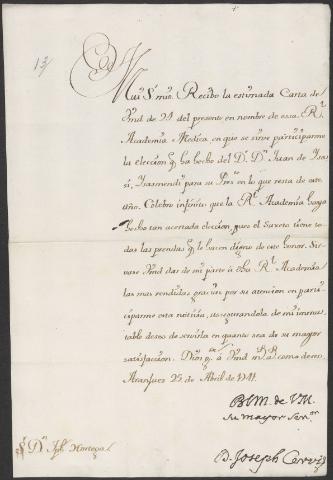 13
Mui S.r mio. Recibo la estimada Carta de
Vmd de 24 del presente en nombre de essa R.l
Academia Medica, en que se sirve participarme
la eleccion q̃ ha hecho del D. Dn Juan de
Isasmendi para su Pres.te en lo que resta de este
año. Celebro infinito que la R.l Academia haya
hecho tan acertada eleccion, pues el Sugeto tiene to
das las prendas q̃ le hacen digno de este honor. Sir
vase Vmd dar de mi parte à dha R.l Academia
las mas rendidas gracias por su atencion en parti
ciparme esta noticia, assegurandola de mi inmu
table deseo de servirla en quanto sea de su mayor
satisfaccion. Dios g.de à Vmd m.s a.s como deseo
Aranjuez 25 de Abril de 1741.
BLM. de VM.
su mayor Ser.or
D. Joseph Cervi
S.r Dn Jph. Hortega